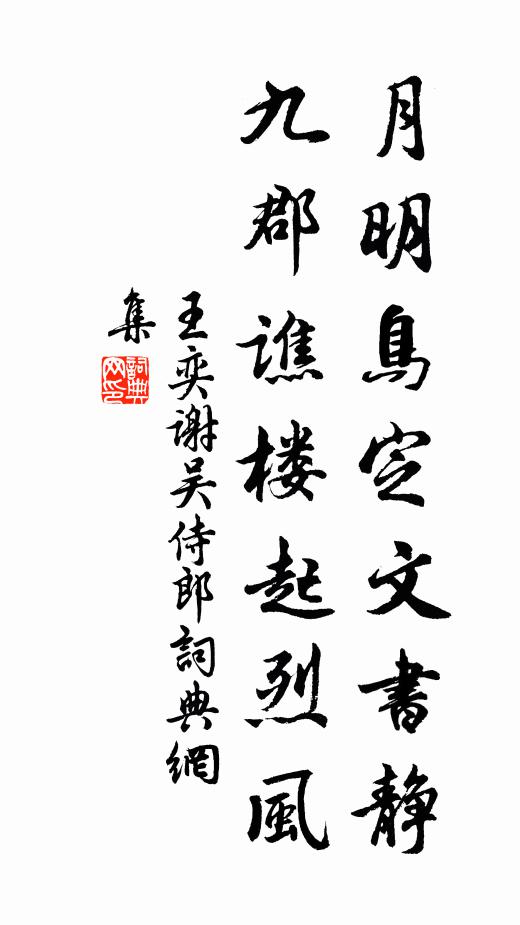 月明鳥定文書静
九郡譙楼起烈風
王奕謝吴侍郎詞典網
集
詞典
网印